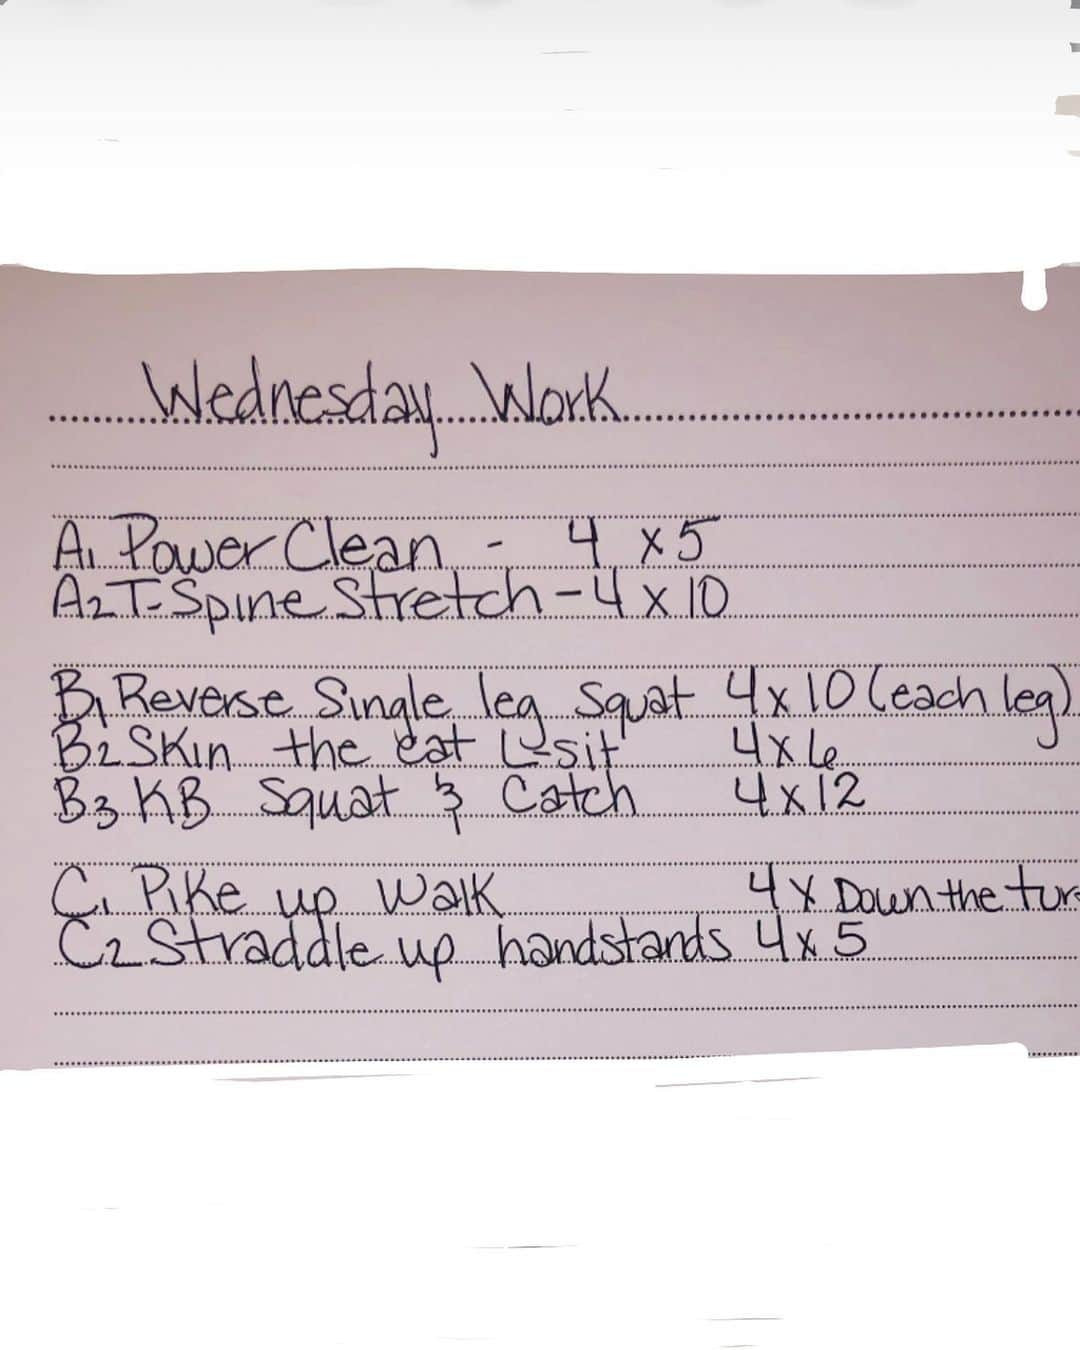 Wednesday Work
A1 Power Clean - 4 x 5
A2 T-Spine Stretch - 4 x 10
B1 Reverse Single leg Squat 4 x 10 (each leg)
B2 Skin the cat L-sit 4 x 6
B3 KB Squat & Catch 4 x 12
C1 Pike up Walk 4 x Down the
C2 Straddle up handstands 4 x 5